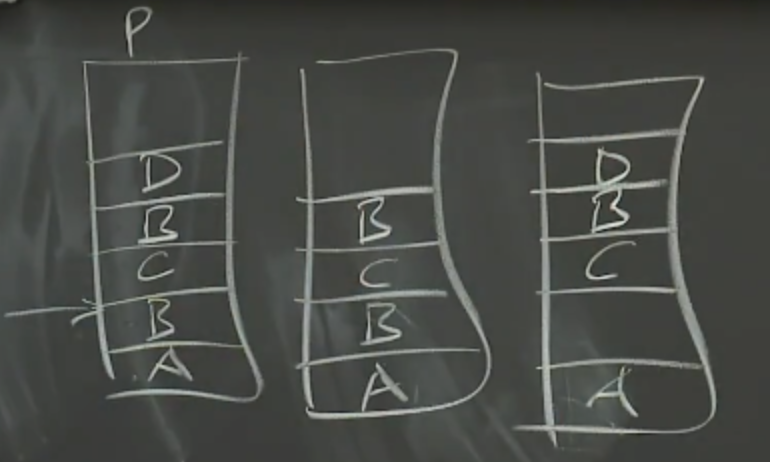 P
D
B
C
B
A
B
C
B
A
D
B
C
A